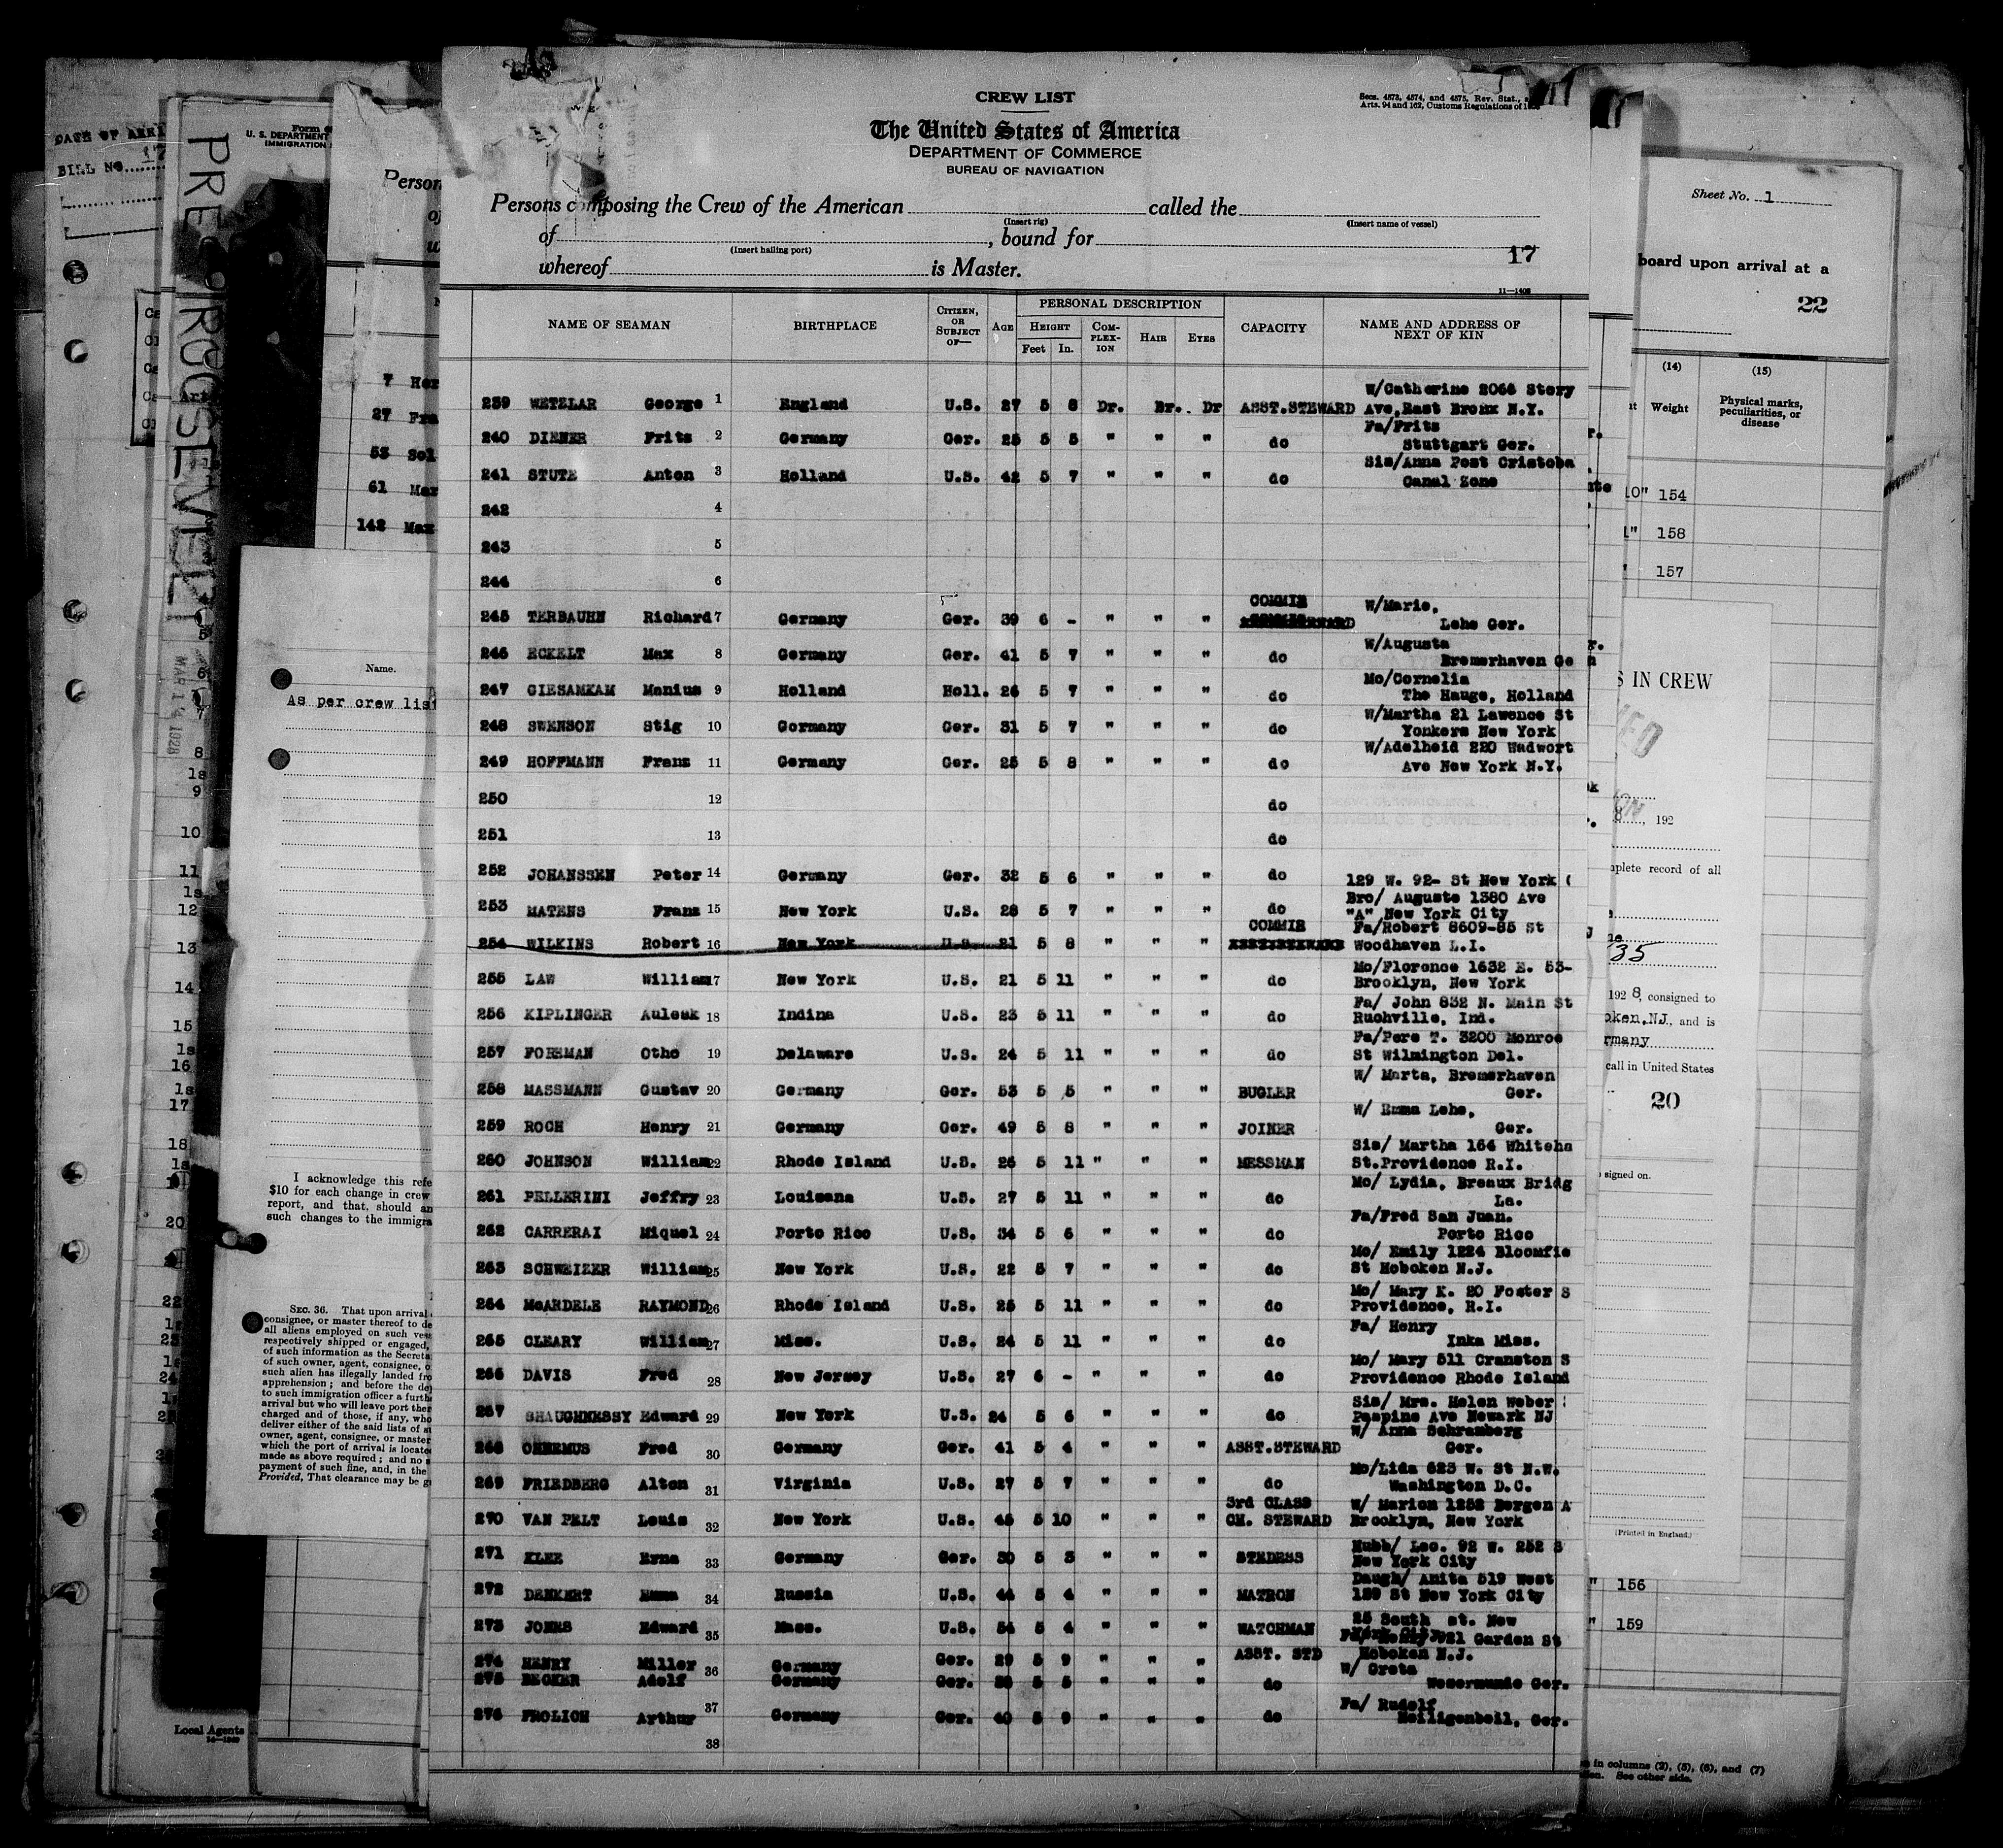 CREW LIST
Secs. 4573, 4574, and 4575, Rev. Stat.,
Arts. 94 and 162, Customs Regulations of
The United States of America
DEPARTMENT OF COMMERCE
BUREAU OF NAVIGATION
Persons composing the Crew of the American called the
(Insert rig) (Insert name of vessel)
of , bound for
(Insert hailing port)
17
whereof is Master.
11—1408
NAME OF SEAMAN BIRTHPLACE CITIZEN, OR SUBJECT OF— AGE PERSONAL DESCRIPTION CAPACITY NAME AND ADDRESS OF NEXT OF KIN
HEIGHT COM-PLEX-ION HAIR EYES
Feet In.
W/Catherine 2066 Story
239 WETZLAR George 1 England U.S. 27 5 8 Dr. Br. Dr ASST.STEWARD Ave,East Bronx N.Y.
Fa/Frits
240 DIENER Frits 2 Germany Ger. 25 5 5 " " " do Stuttgart Ger.
Sis/Anna Post Cristoba
241 STUTE Anton 3 Holland U.S. 42 5 7 " " " do Canal Zone
242 4
243 5
244 6
COMMIE W/Marie,
245 TERBAUHN Richard 7 Germany Ger. 39 6 - " " " Lehe Ger.
W/Augusta
246 ECKELT Max 8 Germany Ger. 41 5 7 " " " do Bremerhaven Ge
Mo/Cornelia
247 GIESAMKAM Manius 9 Holland Holl. 26 5 7 " " " do The Hauge, Holland
W/Martha 21 Lawence St
248 SWENSON Stig 10 Germany Ger. 31 5 7 " " " do Yonkers New York
W/Adelheid 220 Wadwort
249 HOFFMANN Frans 11 Germany Ger. 25 5 8 " " " do Ave New York N.Y.
250 12 do
251 13 do
252 JOHANSSEN Peter 14 Germany Ger. 32 5 6 " " " do 129 W. 92- St New York (
Bro/ Auguste 1380 Ave
253 MATENS Frans 15 New York U.S. 28 5 7 " " " do "A" New York City
COMMIE Fa/Robert 8609-85 St
254 WILKINS Robert 16 New York U.S. 21 5 8 " " " Woodhaven L.I.
Mo/Florence 1632 E. 53-
255 LAW William 17 New York U.S. 21 5 11 " " " do Brooklyn, New York
Fa/ John 832 N. Main St
256 KIPLINGER Auleak 18 Indina U.S. 23 5 11 " " " do Ruchville, Ind.
Fa/Pere T. 3200 Monroe
257 FORSMAN Otho 19 Delaware U.S. 24 5 11 " " " do St Wilmington Del.
W/ Marta, Bremerhaven
258 MASSMANN Gustav 20 Germany Ger. 53 5 5 " " " BUGLER Ger.
W/ Emma Lehe,
259 ROCH Henry 21 Germany Ger. 49 5 8 " " " JOINER Ger.
Sis/ Martha 164 Whiteha
260 JOHNSON William 22 Rhode Island U.S. 26 5 11 " " " MESSMAN St.Providence R.I.
Mo/ Lydia, Breaux Bridg
261 PELLERINI Jeffry 23 Louisana U.S. 27 5 11 " " " do La.
Fa/Fred San Juan.
262 CARRERAI Miquel 24 Porto Rico U.S. 34 5 6 " " " do Porto Rico
Mo/ Emily 1224 Bloomfie
263 SCHWEIZER William 25 New York U.S. 22 5 7 " " " do St Hoboken N.J.
Mo/ Mary K. 20 Foster S
264 McARDELE RAYMOND 26 Rhode Island U.S. 25 5 11 " " " do Providence, R.I.
Fa/ Henry
265 CLEARY William 27 Miss. U.S. 24 5 11 " " " do Inka Miss.
Mo/ Mary 511 Cranston S
266 DAVIS Fred 28 New Jersey U.S. 27 6 - " " " do Providence Rhode Island
Sis/ Mrs. Helen Weber
267 SHAUGHNESSY Edward 29 New York U.S. 24 5 6 " " " do Paspine Ave Newark NJ
W/ Anna Schramberg
268 OHNEMUS Fred 30 Germany Ger. 41 5 4 " " " ASST.STEWARD Ger.
Mo/Lida 623 W. St N.W.
269 FRIEDBERG Alton 31 Virginia U.S. 27 5 7 " " " do Washington D.C.
3rd CLASS W/ Marion 1252 Bergen A
270 VAN PELT Louis 32 New York U.S. 45 5 10 " " " CH. STEWARD Brooklyn, New York
Hubb/ Leo. 92 W. 252 S
271 KLEE Erna 33 Germany Ger. 30 5 3 " " " STEDESS New York City
Daugh/ Anita 519 West
272 DENKERT Emma 34 Russia U.S. 44 5 4 " " " MATRON 129 St New York City
25 South st. New
273 JONES Edward 35 Mass. U.S. 54 5 4 " " " WATCHMAN
921 Garden St
274 HENRY Miller 36 Germany Ger. 29 5 9 " " " ASST. STD Hoboken N.J.
W/ Greta
275 BECKER Adolf Germany Ger. 38 5 5 " " " do Wesermunde Ger.
Fa/ Rudolf
276 FROLICH Arthur 37 Germany Ger. 40 5 9 " " " do Heiligenbeil, Ger.
38
DATE OF ARRI
BILL NO. 17
PRES. ROOSEVELT
MAR 14 1928
Form
U. S. DEPARTMENT
IMMIGRATION
Person
7 Her
27 Fra
53 Sol
61 Mar
142 Max
Name.
As per crew list
I acknowledge this refe
$10 for each change in crew
report, and that, should an
such changes to the immigra
SEC. 36. That upon arrival
consignee, or master thereof to de
all aliens employed on such ves
respectively shipped or engaged,
of such information as the Secreta
of such owner, agent, consignee, o
such alien has illegally landed fro
apprehension; and before the de
to such immigration officer a furth
arrival but who will leave port ther
charged and of those, if any, who
deliver either of the said lists of
owner, agent, consignee, or master
which the port of arrival is locate
made as above required; and no
payment of such fine, and, in the
Provided, That clearance may be g
Local Agents
Sheet No. 1
board upon arrival at a
22
(14) (15)
Weight Physical marks, peculiarities, or disease
10" 154
1" 158
157
S IN CREW
8, 192
mplete record of all
35
192 8, consigned to
oken, NJ., and is
rmany
call in United States
20
signed on.
(Printed in England.)
" 156
" 159
in columns (2), (5), (6), and (7)
See other side.